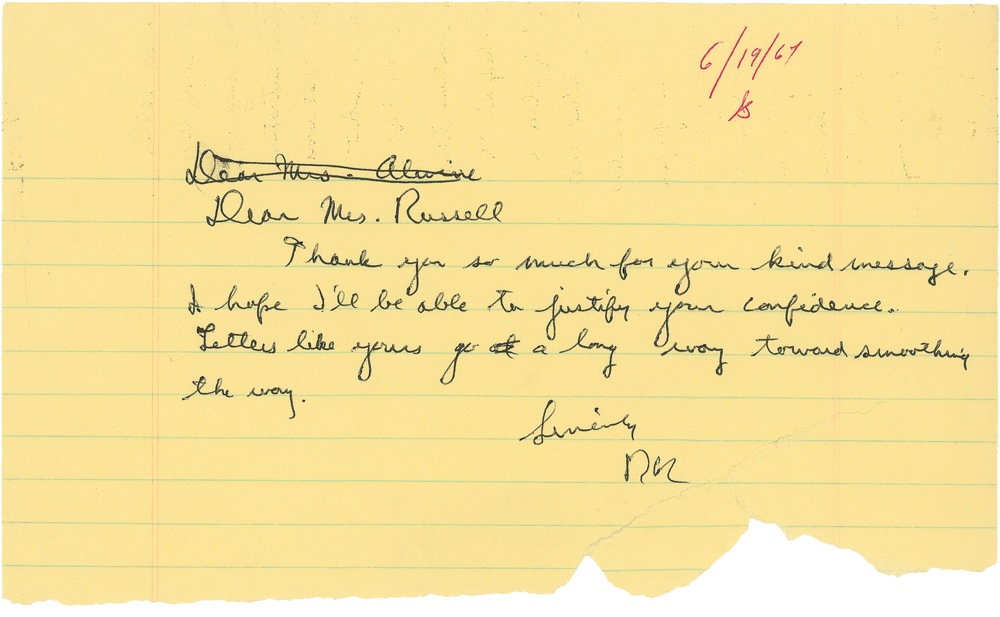 6/19/67
Dear Mrs. Alwine
Dear Mrs. Russell
Thank you so much for your kind message.
I hope I'll be able to justify your confidence.
Letters like yours go a long way toward smoothing
the way.
Sincerely
RR